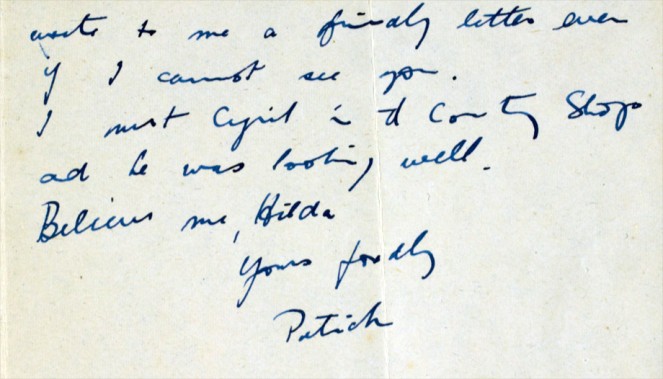 write to me a friendly letter even
if I cannot see you.
I met Cyril in the County Shop
and he was looking well.
Believe me, Hilda
Yours fondly
Patrick